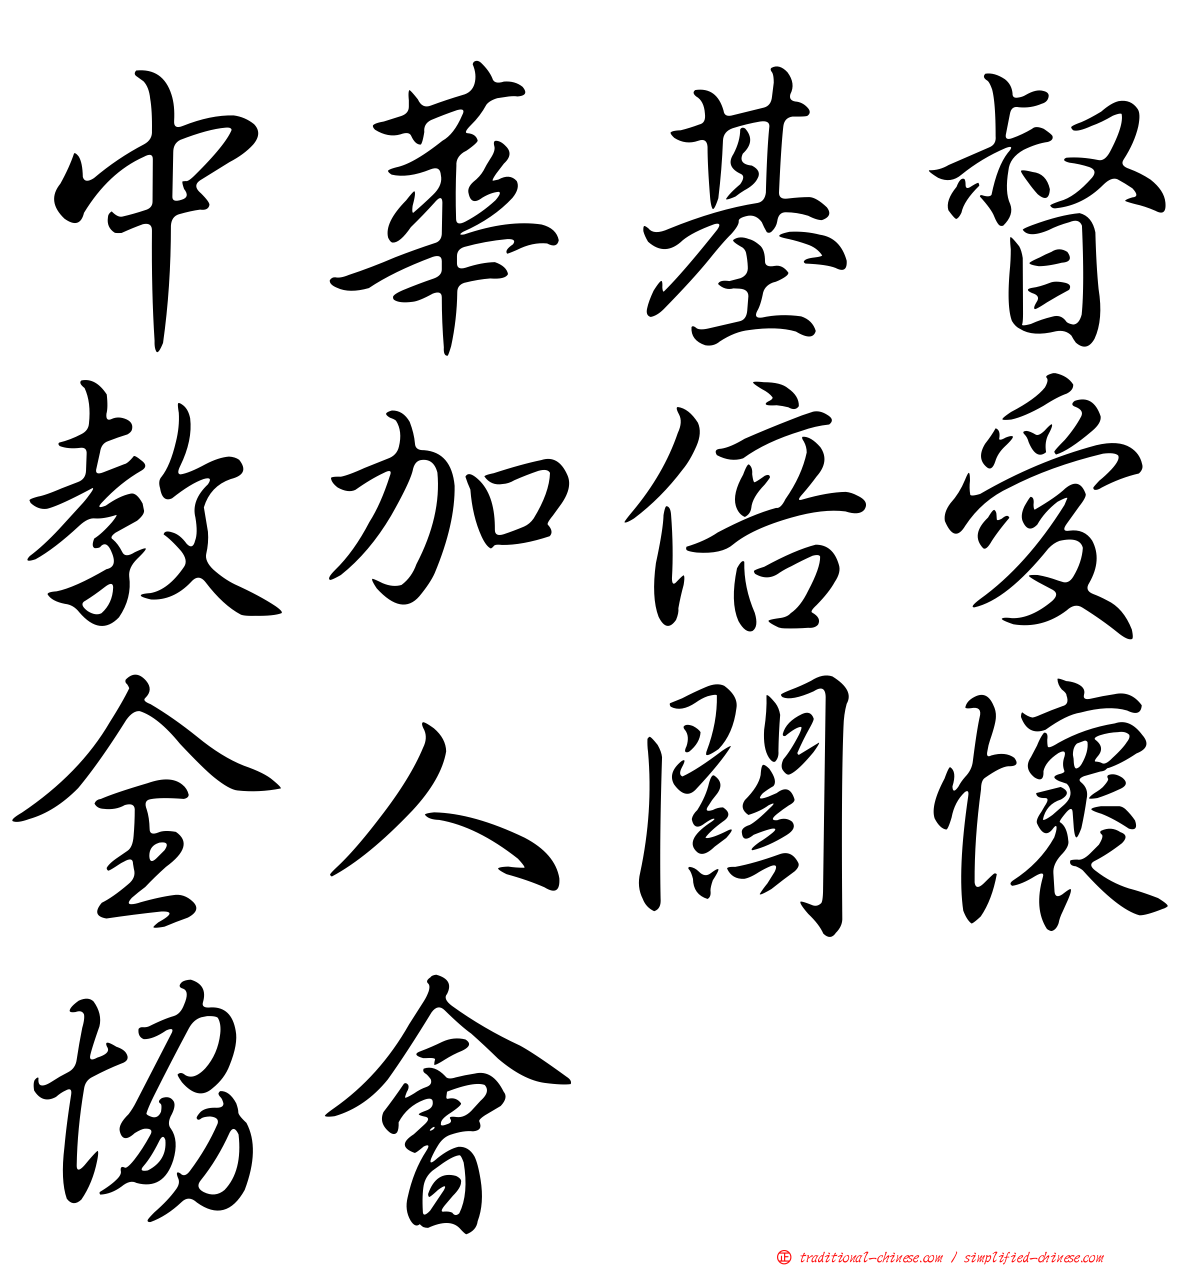 中華基督
教加倍愛
全人關懷
協會
正 traditional-chinese.com / simplified-chinese.com